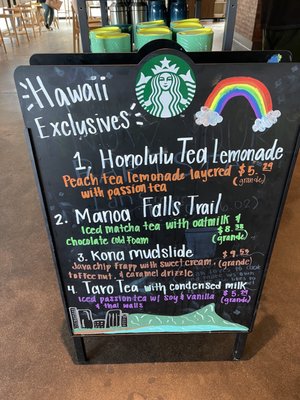 Hawaii
Exclusives
1. Honolulu Tea Lemonade
Peach tea lemonade layered $5.29
with passion tea (grande)
2. Manoa Falls Trail
Iced matcha tea with oatmilk &
chocolate cold foam $8.38
(grande)
3. Kona mudslide
Java chip frapp with sweet cream, $9.59
toffee nut, & caramel drizzle (grande)
4. Taro Tea with condensed milk
Iced passion tea w/ soy & vanilla $5.29
(grande)